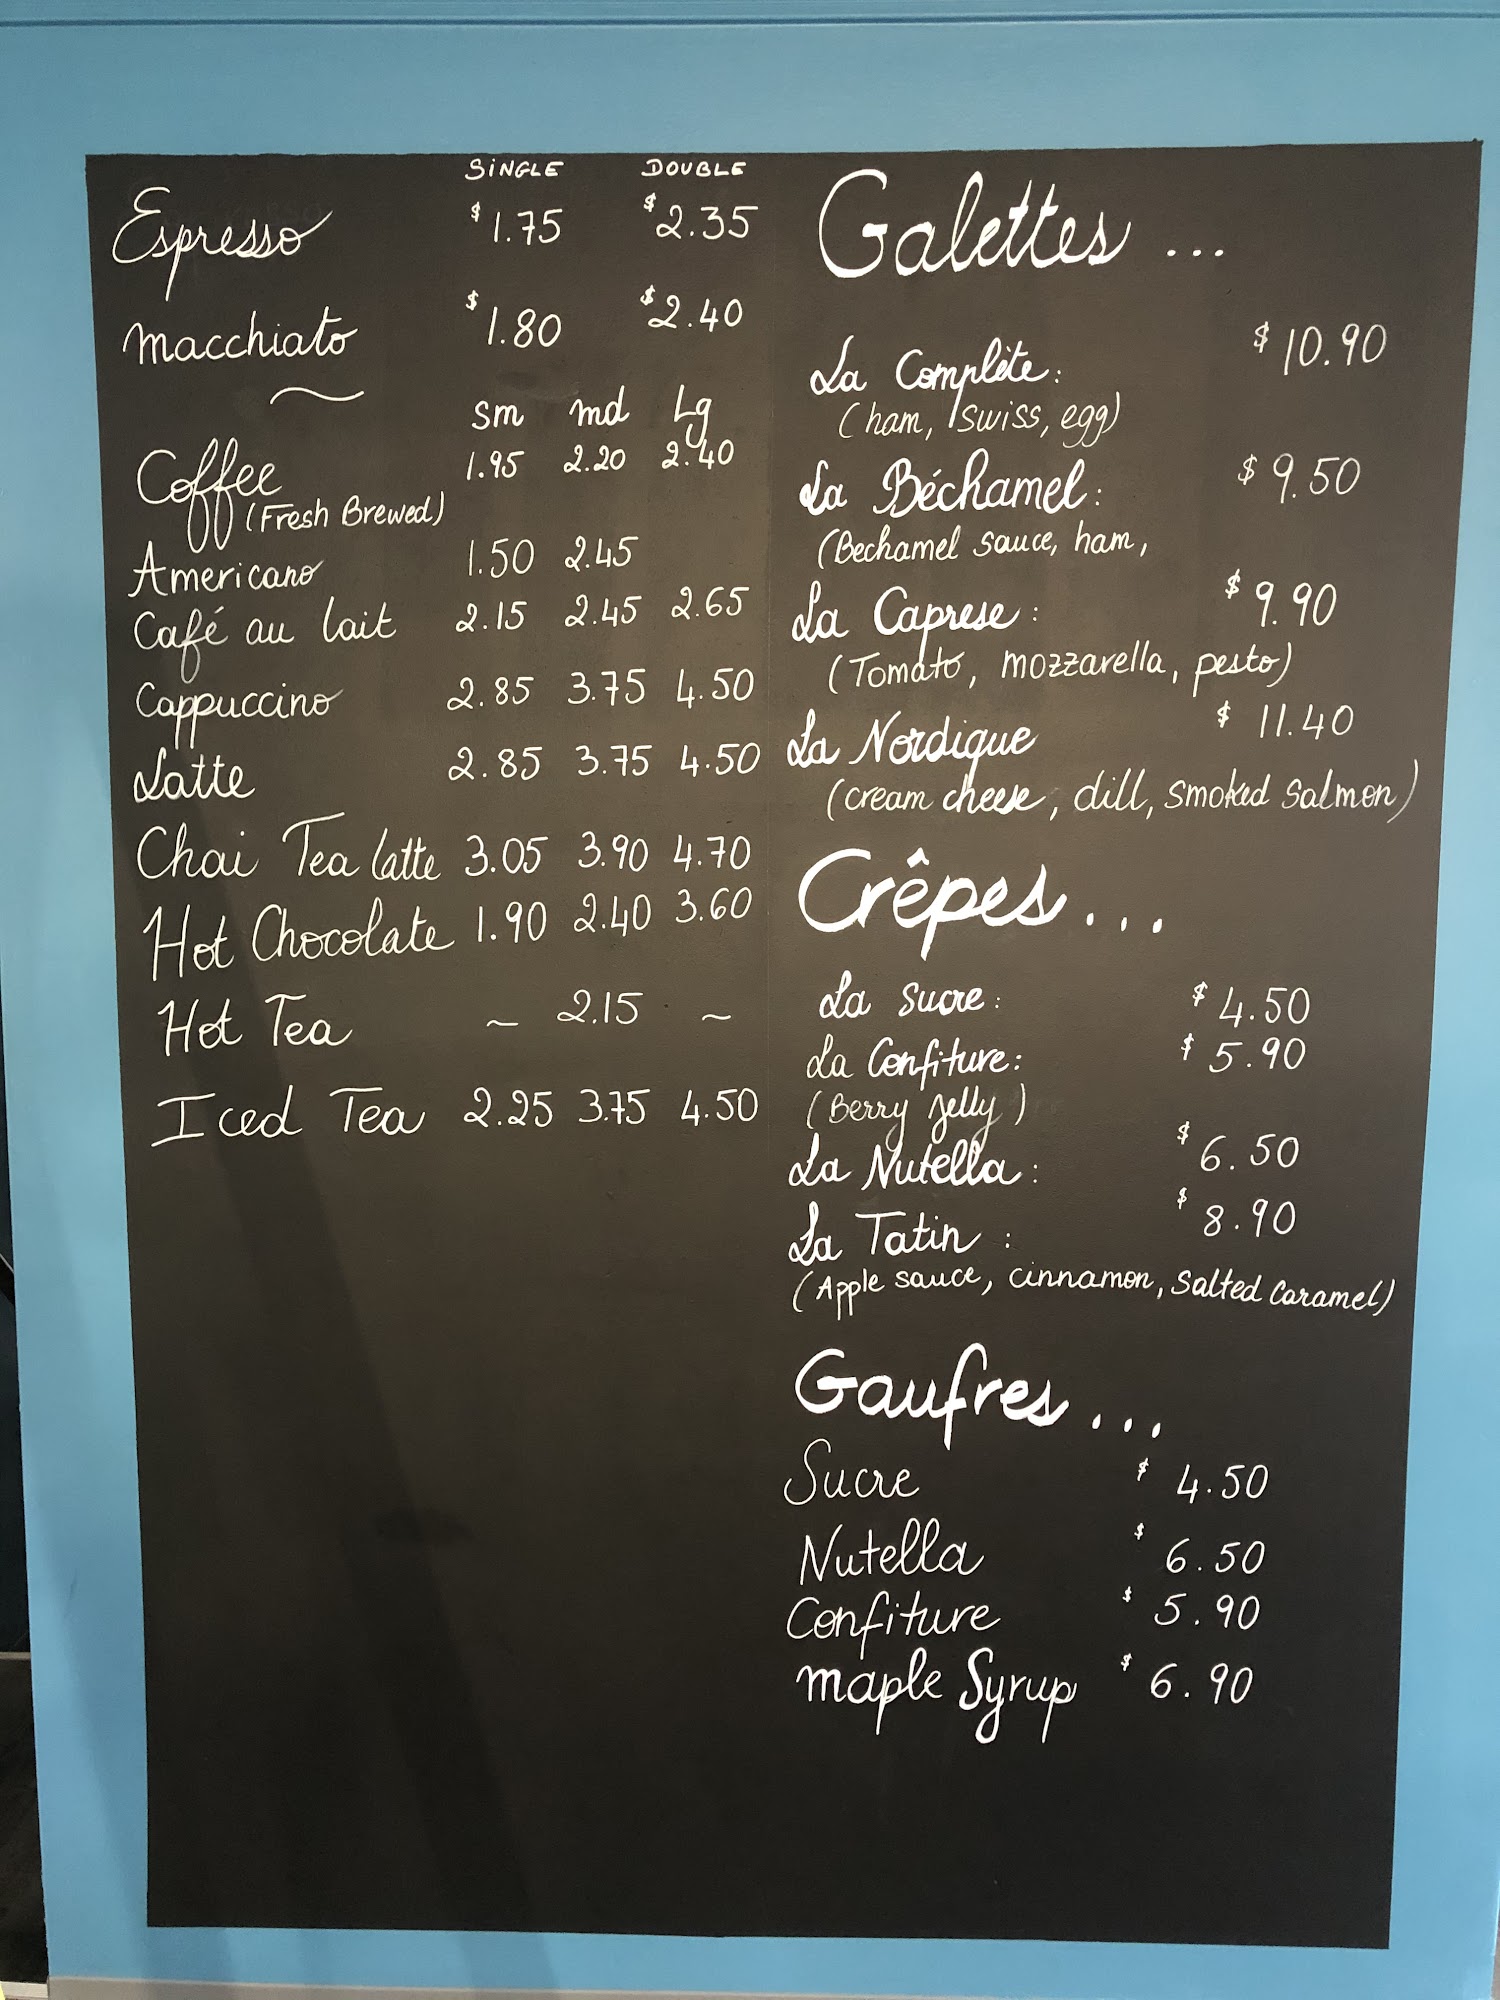 SINGLE DOUBLE
Espresso $1.75 $2.35
Macchiato $1.80 $2.40
~
Sm md Lg
Coffee 1.95 2.20 2.40
(Fresh Brewed)
Americano 1.50 2.45
Café au lait 2.15 2.45 2.65
Cappuccino 2.85 3.75 4.50
Latte 2.85 3.75 4.50
Chai Tea latte 3.05 3.90 4.70
Hot Chocolate 1.90 2.40 3.60
Hot Tea ~ 2.15 ~
Iced Tea 2.25 3.75 4.50
Galettes ...
La Complète: $10.90
(ham, Swiss, egg)
La Béchamel: $9.50
(Bechamel sauce, ham,
La Caprese: $9.90
(Tomato, mozzarella, pesto)
La Nordique $11.40
(cream cheese, dill, smoked salmon)
Crêpes...
La Sucre: $4.50
La Confiture: $5.90
(Berry Jelly)
La Nutella: $6.50
La Tatin: $8.90
(Apple sauce, cinnamon, salted caramel)
Gaufres...
Sucre $4.50
Nutella $6.50
Confiture $5.90
maple Syrup $6.90